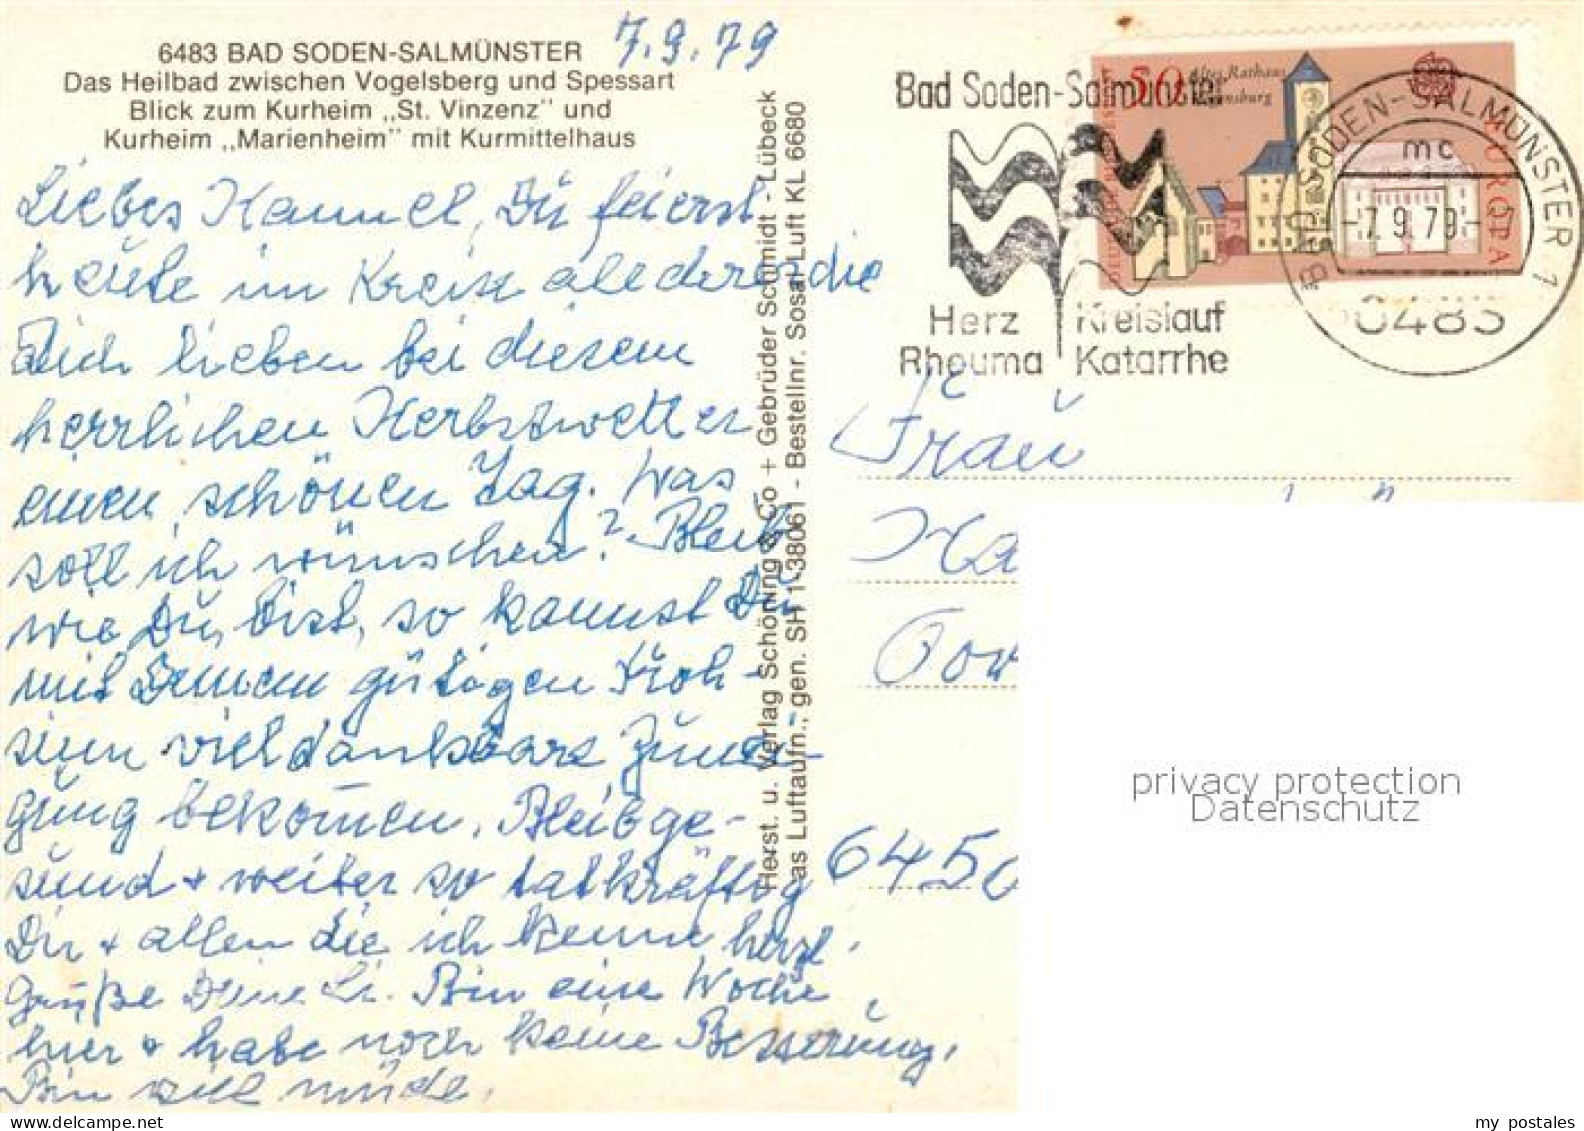 7.9.79
6483 BAD SODEN-SALMÜNSTER
Das Heilbad zwischen Vogelsberg und Spessart
Blick zum Kurheim „St. Vinzenz" und
Kurheim „Marienheim" mit Kurmittelhaus
Liebes Du feierst
heute im Kreise all derer die
Dich lieben bei diesem
herrlichen Herbstwetter
einen schönen Tag. Was
soll ich wünschen? Bleib
wie Du bist, so kannst Du
mit Deinem gütigen Froh-
sinn viel dankbare Zunei-
gung bekommen. Bleib ge-
sund + weiter so tatkräftig
Dir + allen die ich kenne herzl.
Grüße Deine Bin eine Woche
hier + habe noch keine Besserung,
Bin viel müde.
Herst. u. Verlag Schöning & Co + Gebrüder Schmidt - Lübeck
as Luftaufn., gen. SH 1-38061 - Bestellnr. Sosal Luft KL 6680
Bad Soden-Salmünster
Herz Kreislauf
Rheuma Katarrhe
50
Altes Rathaus
Regensburg
EUROPA
BAD SODEN-SALMÜNSTER 1
mc
-7.9.79-
6483
Frau
Ha
645
privacy protection
Datenschutz
my postales